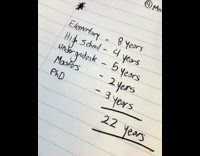 Elementary - 8 years
High School - 4 years
undergrad - 5 years
Masters - 2 years
PhD - 3 years
22 years